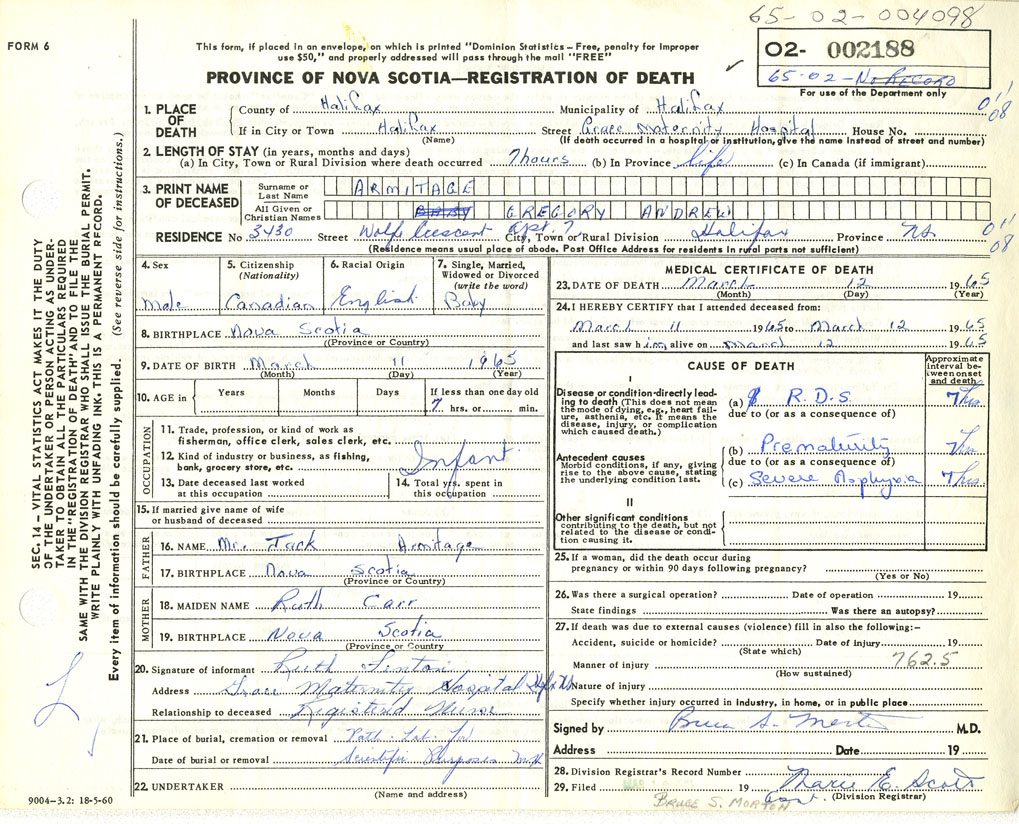 65-02-004098
FORM 6
This form, if placed in an envelope, on which is printed "Dominion Statistics—Free, penalty for improper
use $50," and properly addressed will pass through the mail "FREE"
02- 002188
65-02-No RECORD
For use of the Department only
PROVINCE OF NOVA SCOTIA—REGISTRATION OF DEATH
1. PLACE OF DEATH
County of Halifax Municipality of Halifax
If in City or Town Halifax Street Grace Maternity Hospital House No.
(Name) (If death occurred in a hospital or institution, give the name instead of street and number)
08
2. LENGTH OF STAY (in years, months and days)
(a) In City, Town or Rural Division where death occurred 7 hours (b) In Province life (c) In Canada (if immigrant)
3. PRINT NAME OF DECEASED
Surname or Last Name ARMITAGE
All Given or Christian Names BABY GREGORY ANDREW
RESIDENCE No. 3430 Street Wolfe Crescent Apt. 7 City, Town or Rural Division Halifax Province N.S.
(Residence means usual place of abode. Post Office Address for residents in rural parts not sufficient)
08
4. Sex Male
5. Citizenship (Nationality) Canadian
6. Racial Origin English
7. Single, Married, Widowed or Divorced (write the word) Baby
8. BIRTHPLACE Nova Scotia
(Province or Country)
9. DATE OF BIRTH March 11 1965
(Month) (Day) (Year)
10. AGE in Years Months Days If less than one day old
7 hrs. or min.
OCCUPATION
11. Trade, profession, or kind of work as
fisherman, office clerk, sales clerk, etc.
12. Kind of industry or business, as fishing,
bank, grocery store, etc.
Infant
13. Date deceased last worked
at this occupation
14. Total yrs. spent in
this occupation
15. If married give name of wife
or husband of deceased
FATHER
16. NAME Mr. Jack Armitage
17. BIRTHPLACE Nova Scotia
(Province or Country)
MOTHER
18. MAIDEN NAME Ruth Carr
19. BIRTHPLACE Nova Scotia
(Province or Country)
20. Signature of informant Ruth
Address Grace Maternity Hospital Hfx N.S.
Relationship to deceased Registered Nurse
21. Place of burial, cremation or removal Path. Lab. for
Date of burial or removal Scientific Purposes
22. UNDERTAKER
(Name and address)
9004-3.2: 18-5-60
MEDICAL CERTIFICATE OF DEATH
23. DATE OF DEATH March 12 1965
(Month) (Day) (Year)
24. I HEREBY CERTIFY that I attended deceased from:
March 11 1965 to March 12 1965
and last saw him alive on March 12 1965
CAUSE OF DEATH
Approximate interval between onset and death
I
Disease or condition directly leading to death (This does not mean the mode of dying, e.g., heart failure, asthenia, etc. It means the disease, injury, or complication which caused death.)
(a) R.D.S 7 hrs
due to (or as a consequence of)
Antecedent causes
Morbid conditions, if any, giving rise to the above cause, stating the underlying condition last.
(b) Prematurity 7 hrs
due to (or as a consequence of)
(c) Severe Asphyxia 7 hrs
II
Other significant conditions
contributing to the death, but not related to the disease or condition causing it.
25. If a woman, did the death occur during
pregnancy or within 90 days following pregnancy?
(Yes or No)
26. Was there a surgical operation? Date of operation 19
State findings Was there an autopsy?
27. If death was due to external causes (violence) fill in also the following:-
Accident, suicide or homicide? Date of injury 19
(State which)
762.5
Manner of injury
(How sustained)
Nature of injury
Specify whether injury occurred in industry, in home, or in public place
Signed by Bruce S. Morton M.D.
Address Date 19
28. Division Registrar's Record Number
29. Filed Marie E. Scott
(Division Registrar)
BRUCE S. MORTON
SEC. 14 – VITAL STATISTICS ACT MAKES IT THE DUTY
OF THE UNDERTAKER OR PERSON ACTING AS UNDER-
TAKER TO OBTAIN ALL THE PARTICULARS REQUIRED
IN THE "REGISTRATION OF DEATH" AND TO FILE THE
SAME WITH THE DIVISION REGISTRAR WHO SHALL ISSUE THE BURIAL PERMIT.
WRITE PLAINLY WITH UNFADING INK. THIS IS A PERMANENT RECORD.
Every item of information should be carefully supplied. (See reverse side for instructions.)